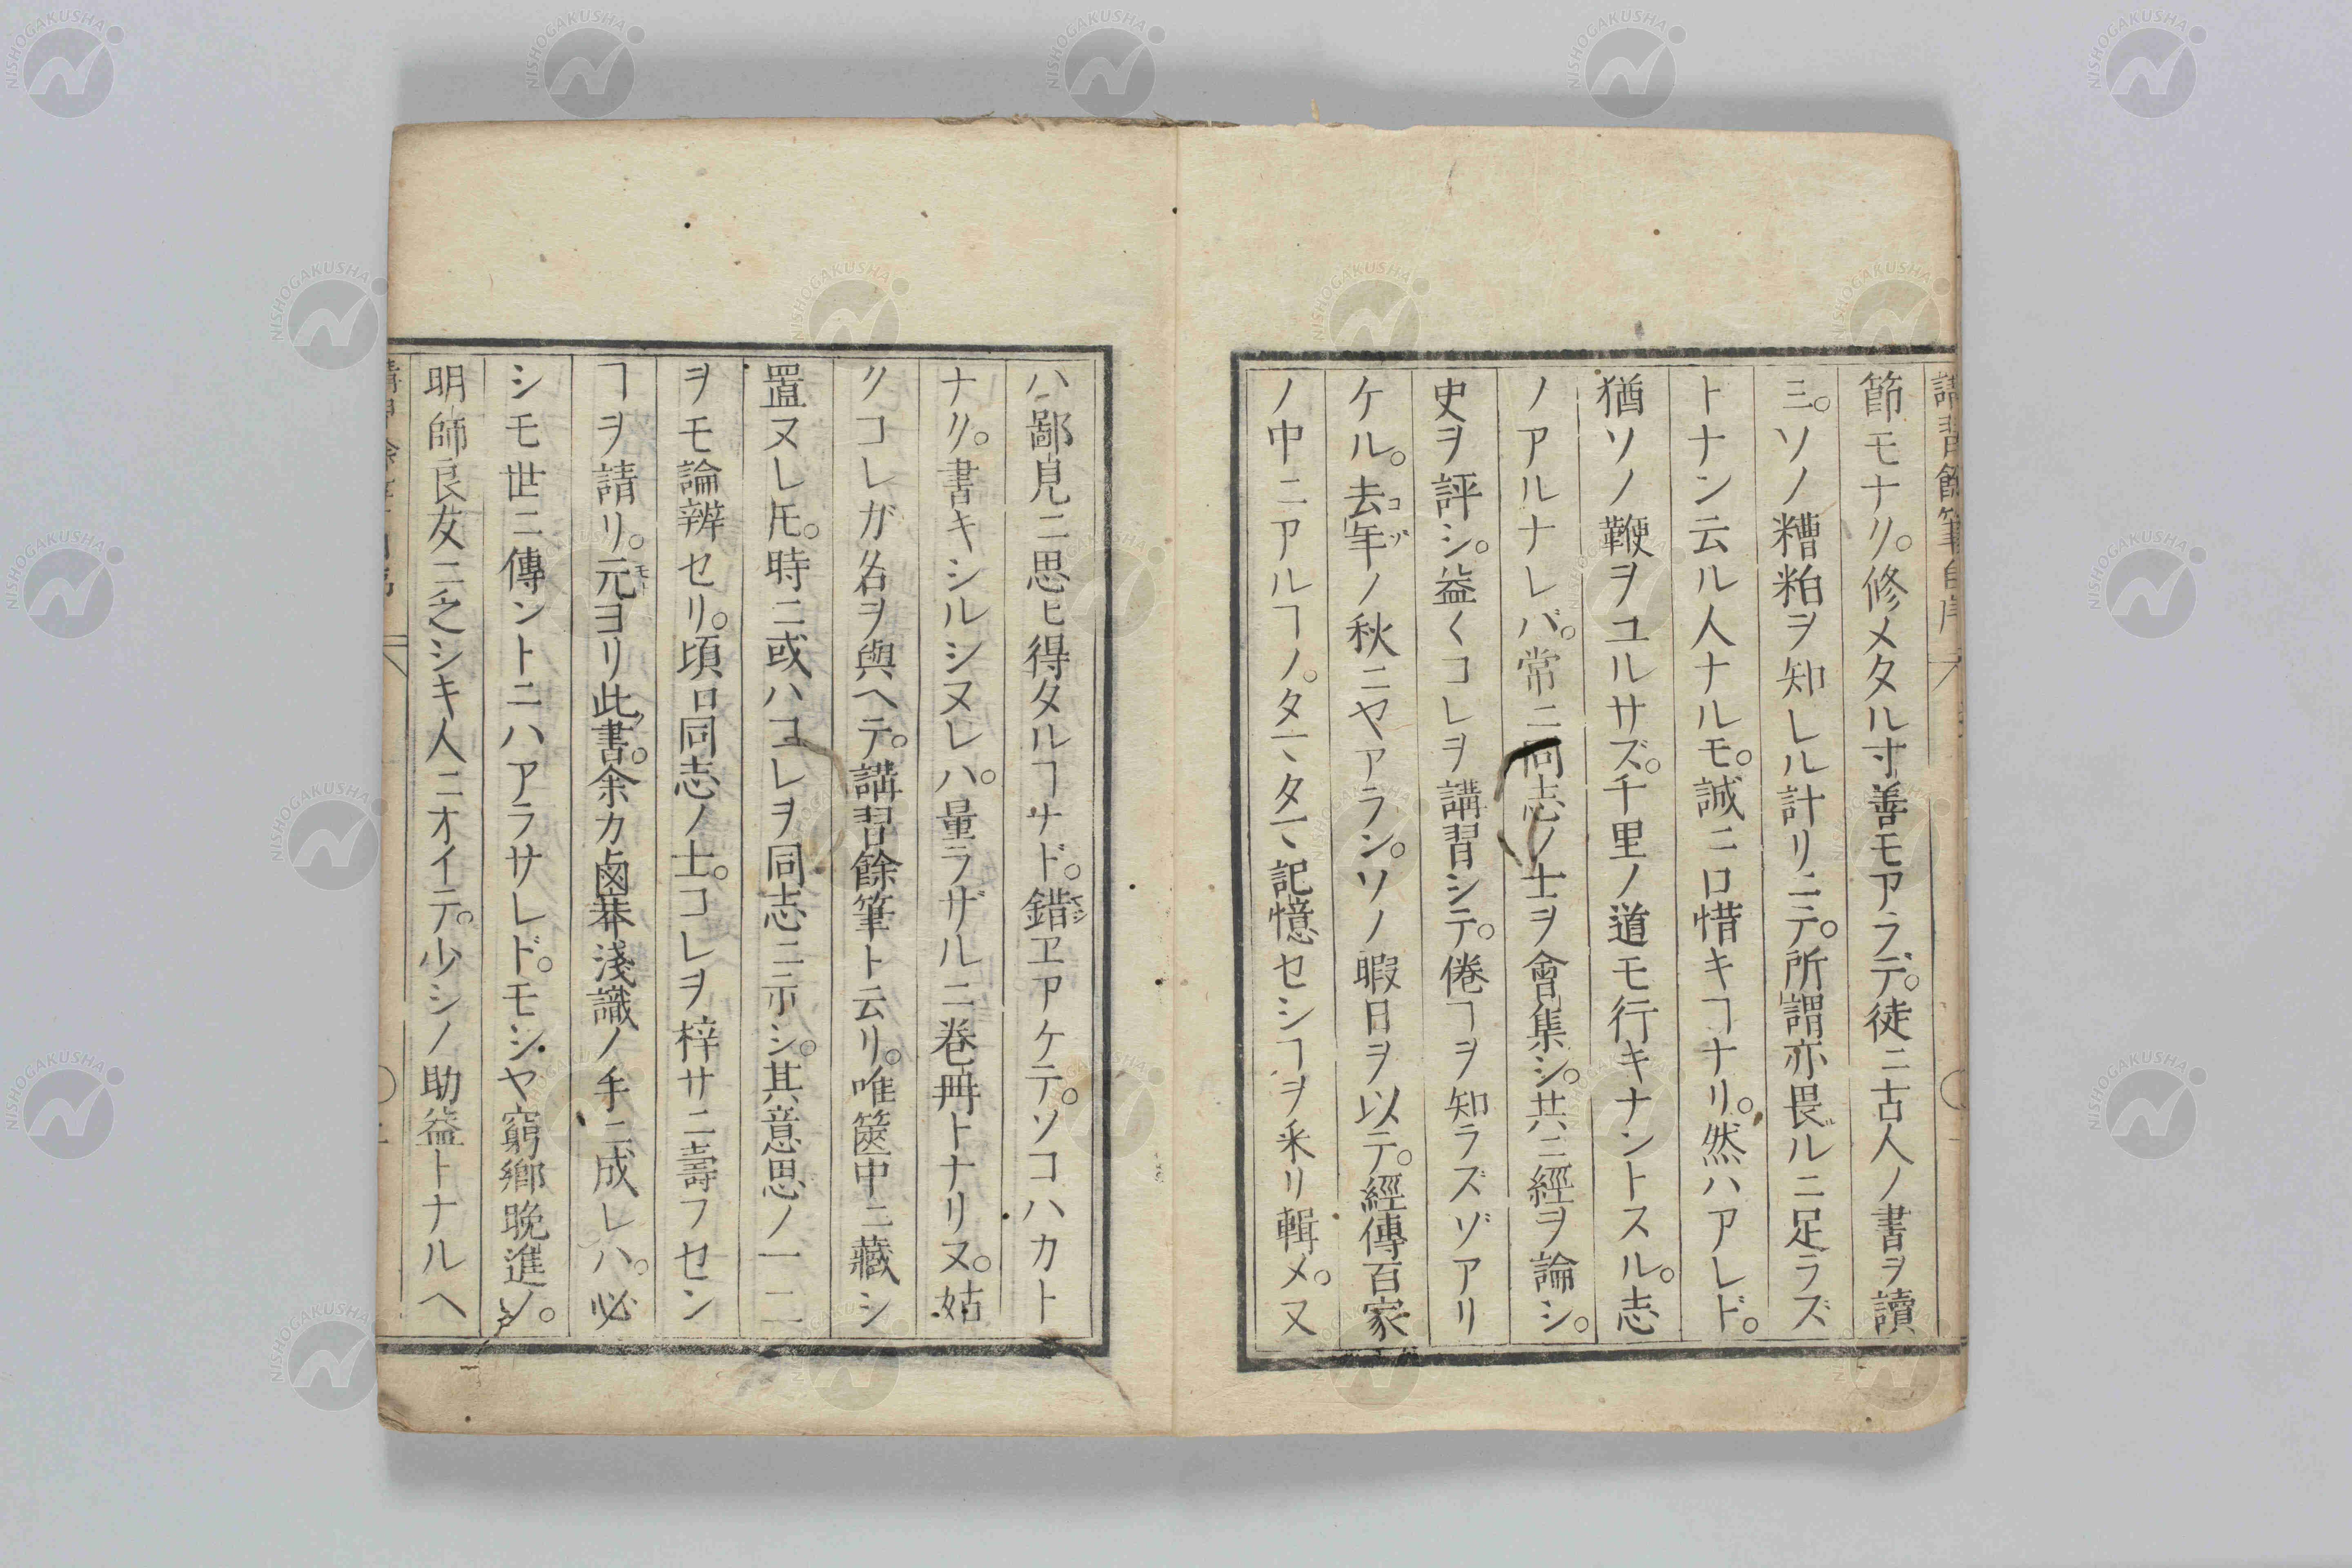 講習餘筆自序
節モナリ。修メタル寸善モアラデ。徒ニ古人ノ書ヲ讀
ミ。ソノ糟粕ヲ知レル計リニテ。所謂亦畏ルニ足ラズ
トナン云ル人ナルモ。誠ニ口惜キヿナリ。然ハアレド。
猶ソノ鞭ヲユルサズ。千里ノ道モ行キナントスル。志
ノアルナレバ。常ニ同志ノ士ヲ會集シ。共ニ經ヲ論シ。
史ヲ評シ。益〱コレヲ講習シテ。倦ヿヲ知ラズゾアリ
ケル。去年ノ秋ニヤアラン。ソノ暇日ヲ以テ。經傳百家
ノ中ニアルヿノ。タマ〱タマ〱記憶セシヿヲ釆リ輯メ。又
ハ鄙見ニ思ヒ得タルヿナド。錯ヱアケテ。ソコハカト
ナク。書キシルシヌレバ。量ラザルニ卷冊トナリヌ。姑
クコレガ名ヲ與ヘテ。講習餘筆ト云リ。唯篋中ニ藏シ
置ヌレ𪜈。時ニ或ハコレヲ同志ニ示シ。其意思ノ一二
ヲモ論辨セリ。頃日同志ノ士。コレヲ梓サニ壽フセン
ヿヲ請リ。元ヨリ此書。余カ鹵莽淺識ノ手ニ成レハ。必
シモ世ニ傳ントニハアラサレド。モシヤ窮鄉晚進ノ。
明師良友ニ乏シキ人ニオイテ。少シノ助益トナルヘ